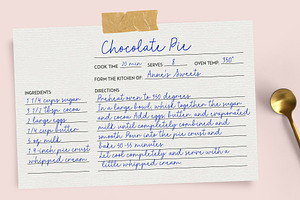 Chocolate Pie
COOK TIME 20 min SERVES 8 OVEN TEMP 350°
FORM THE KITCHEN OF: Anne's Sweets
INGREDIENTS
1 1/4 cups sugar
3 1/2 tbsp. cocoa
2 large eggs
1/4 cup butter
5 oz. milk
1 9-inch pie crust
whipped cream
DIRECTIONS
Preheat oven to 350 degrees
In a large bowl, whisk together the sugar
and cocoa. Add eggs, butter, and evaporated
milk until completely combined and
smooth. Pour into the pie crust and
bake 50-55 minutes.
Let cool completely and serve with a
little whipped cream.